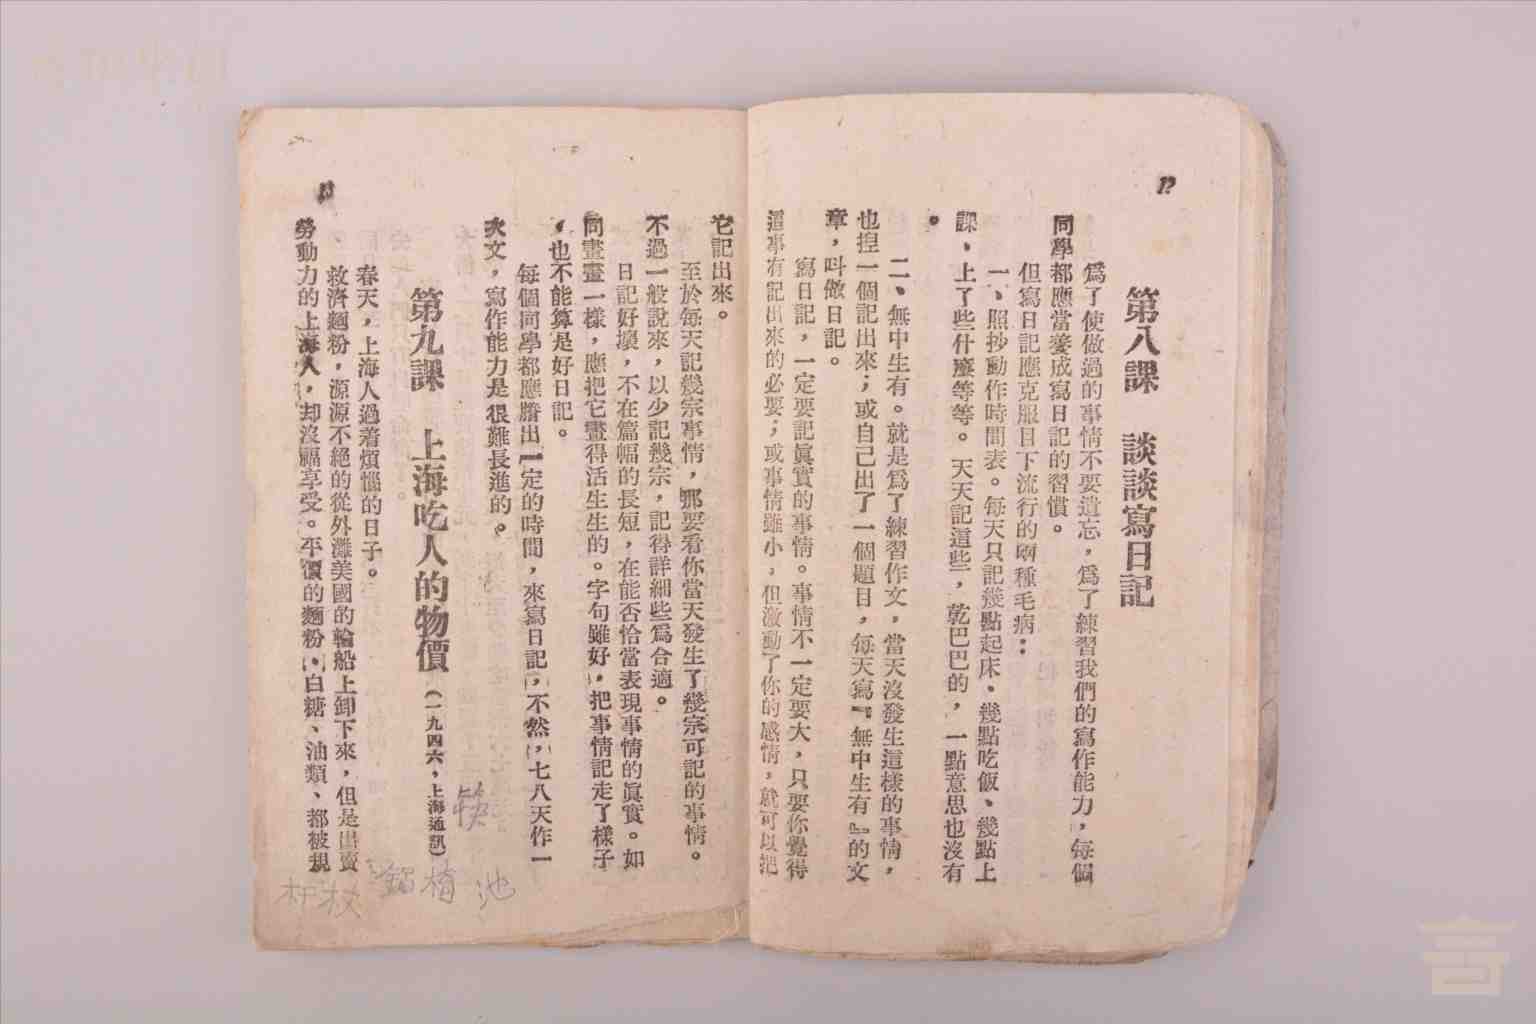 12
第八課　談談寫日記
爲了使做過的事情不要遺忘，爲了練習我們的寫作能力，每個
同學都應當養成寫日記的習慣。
但寫日記應克服目下流行的兩種毛病：
一、照抄動作時間表。每天只記幾點起床、幾點吃飯、幾點上
課、上了些什麼等等。天天記這些，乾巴巴的，一點意思也沒有
。
二、無中生有。就是爲了練習作文，當天沒發生這樣的事情，
也捏一個記出來；或自己出了一個題目，每天寫『無中生有』的文
章，叫做日記。
寫日記，一定要記眞實的事情。事情不一定要大，只要你覺得
這事有記出來的必要；或事情雖小，但激動了你的感情，就可以把
它記出來。
至於每天記幾宗事情，那要看你當天發生了幾宗可記的事情。
不過一般說來，以少記幾宗，記得詳細些爲合適。
日記好壞，不在篇幅的長短，在能否恰當表現事情的眞實。如
同畫畫一樣，應把它畫得活生生的。字句雖好，把事情記走了樣子
，也不能算是好日記。
每個同學都應騰出一定的時間，來寫日記，不然，七八天作一
次文，寫作能力是很難長進的。
第九課　上海吃人的物價（一九四六，上海通訊）
春天，上海人過着煩惱的日子。
救濟麵粉，源源不絕的從外灘美國的輪船上卸下來，但是出賣
勞動力的上海人，却沒福享受。平價的麵粉、白糖、油類、都被規
筷
池